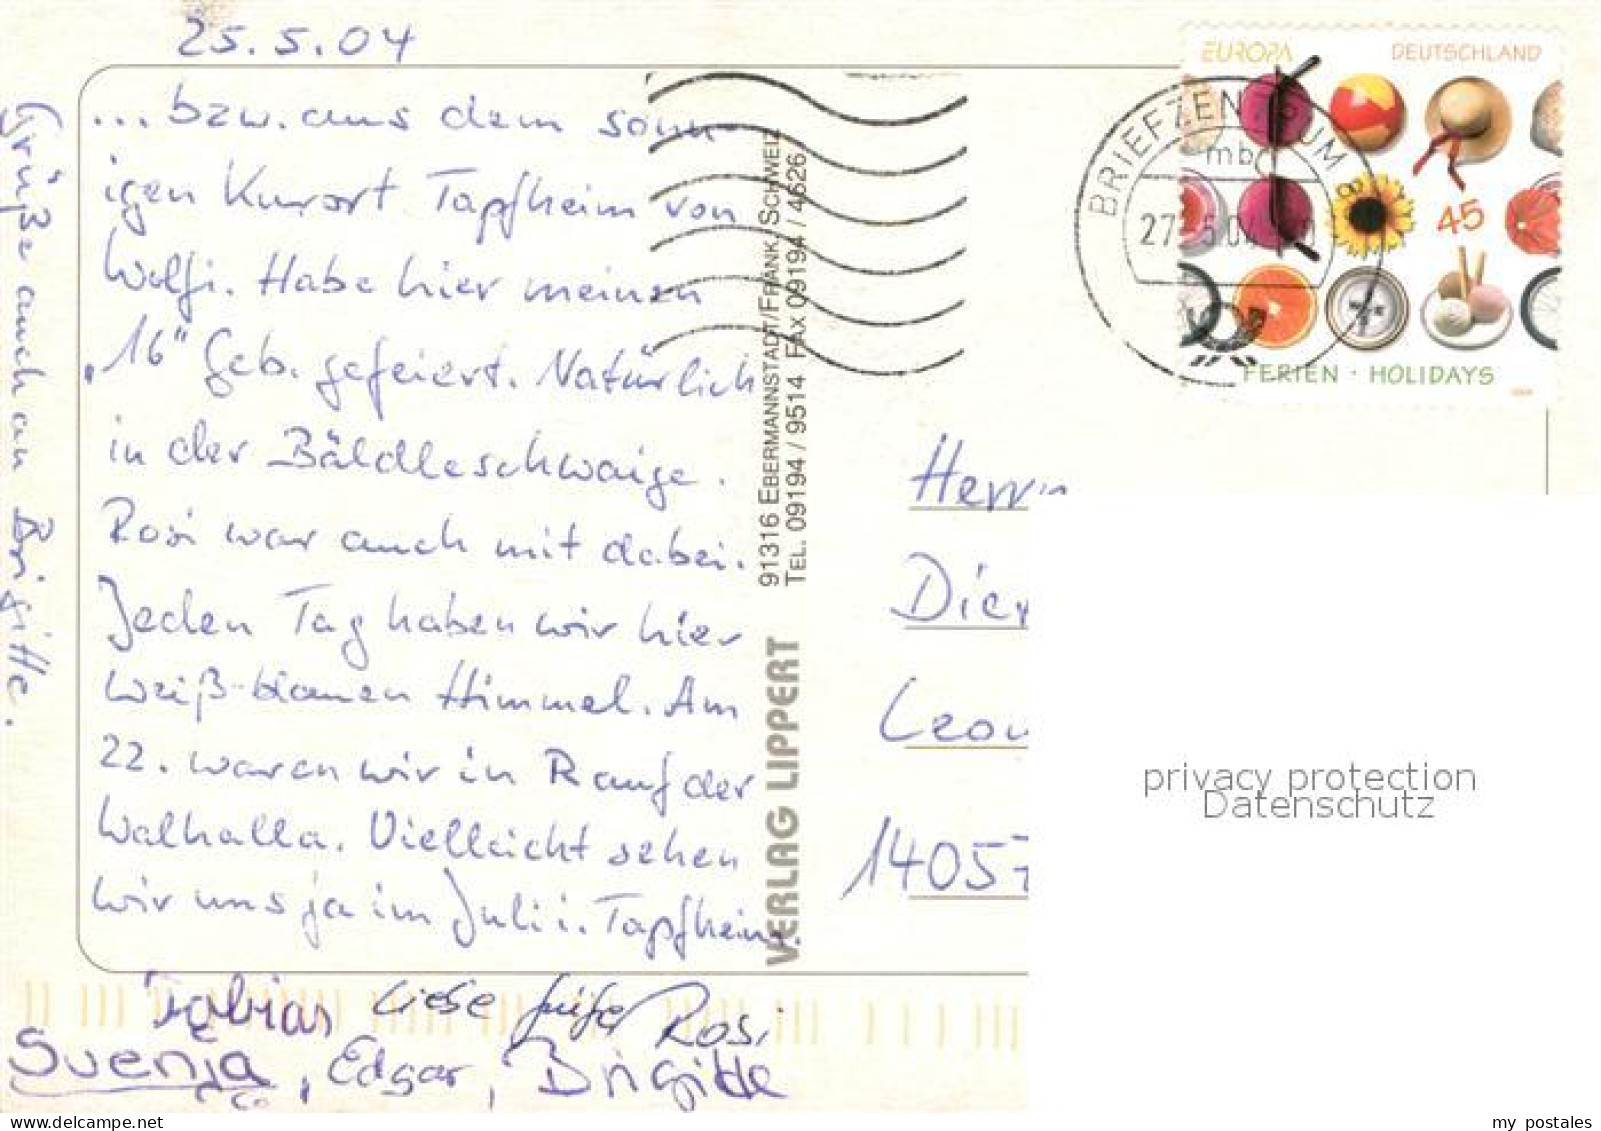 25.5.04
... bzw. aus dem sonn-
igen Kurort Tapfheim von
Wolfi. Habe hier meinen
„16" Geb. gefeiert. Natürlich
in der Bäldleschwaige.
Rosi war auch mit dabei.
Jeden Tag haben wir hier
weiß-blauen Himmel. Am
22. waren wir in R auf der
Walhalla. Vielleicht sehen
wir uns ja im Juli i. Tapfheim.
Tobias Liebe Grüße Rosi
Svenja, Edgar, Brigitte
Grüße auch an Brigitte.
91316 EBERMANNSTADT/FRÄNK. SCHWEIZ
TEL. 09194 / 9514 FAX 09194 / 4626
VERLAG LIPPERT
EUROPA DEUTSCHLAND
45
FERIEN · HOLIDAYS
BRIEFZENTRUM
mb
27.5.04
Herrn
Dier
Leon
14057
privacy protection
Datenschutz
my postales